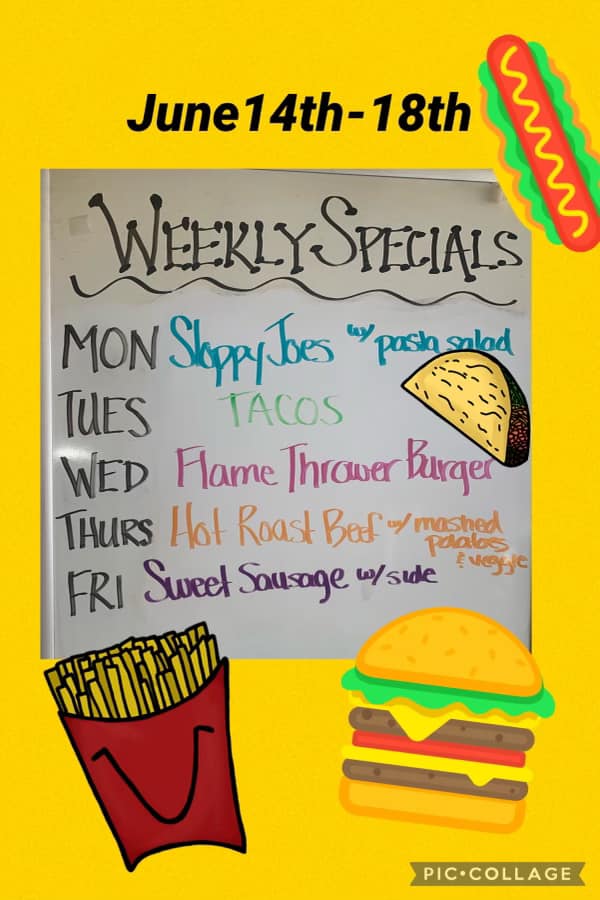 June14th-18th
WEEKLY SPECIALS
MON Sloppy Joes w/ pasta salad
TUES TACOS
WED Flame Thrower Burger
THURS Hot Roast Beef w/ mashed
potatoes
& veggie
FRI Sweet Sausage w/ side
PIC•COLLAGE